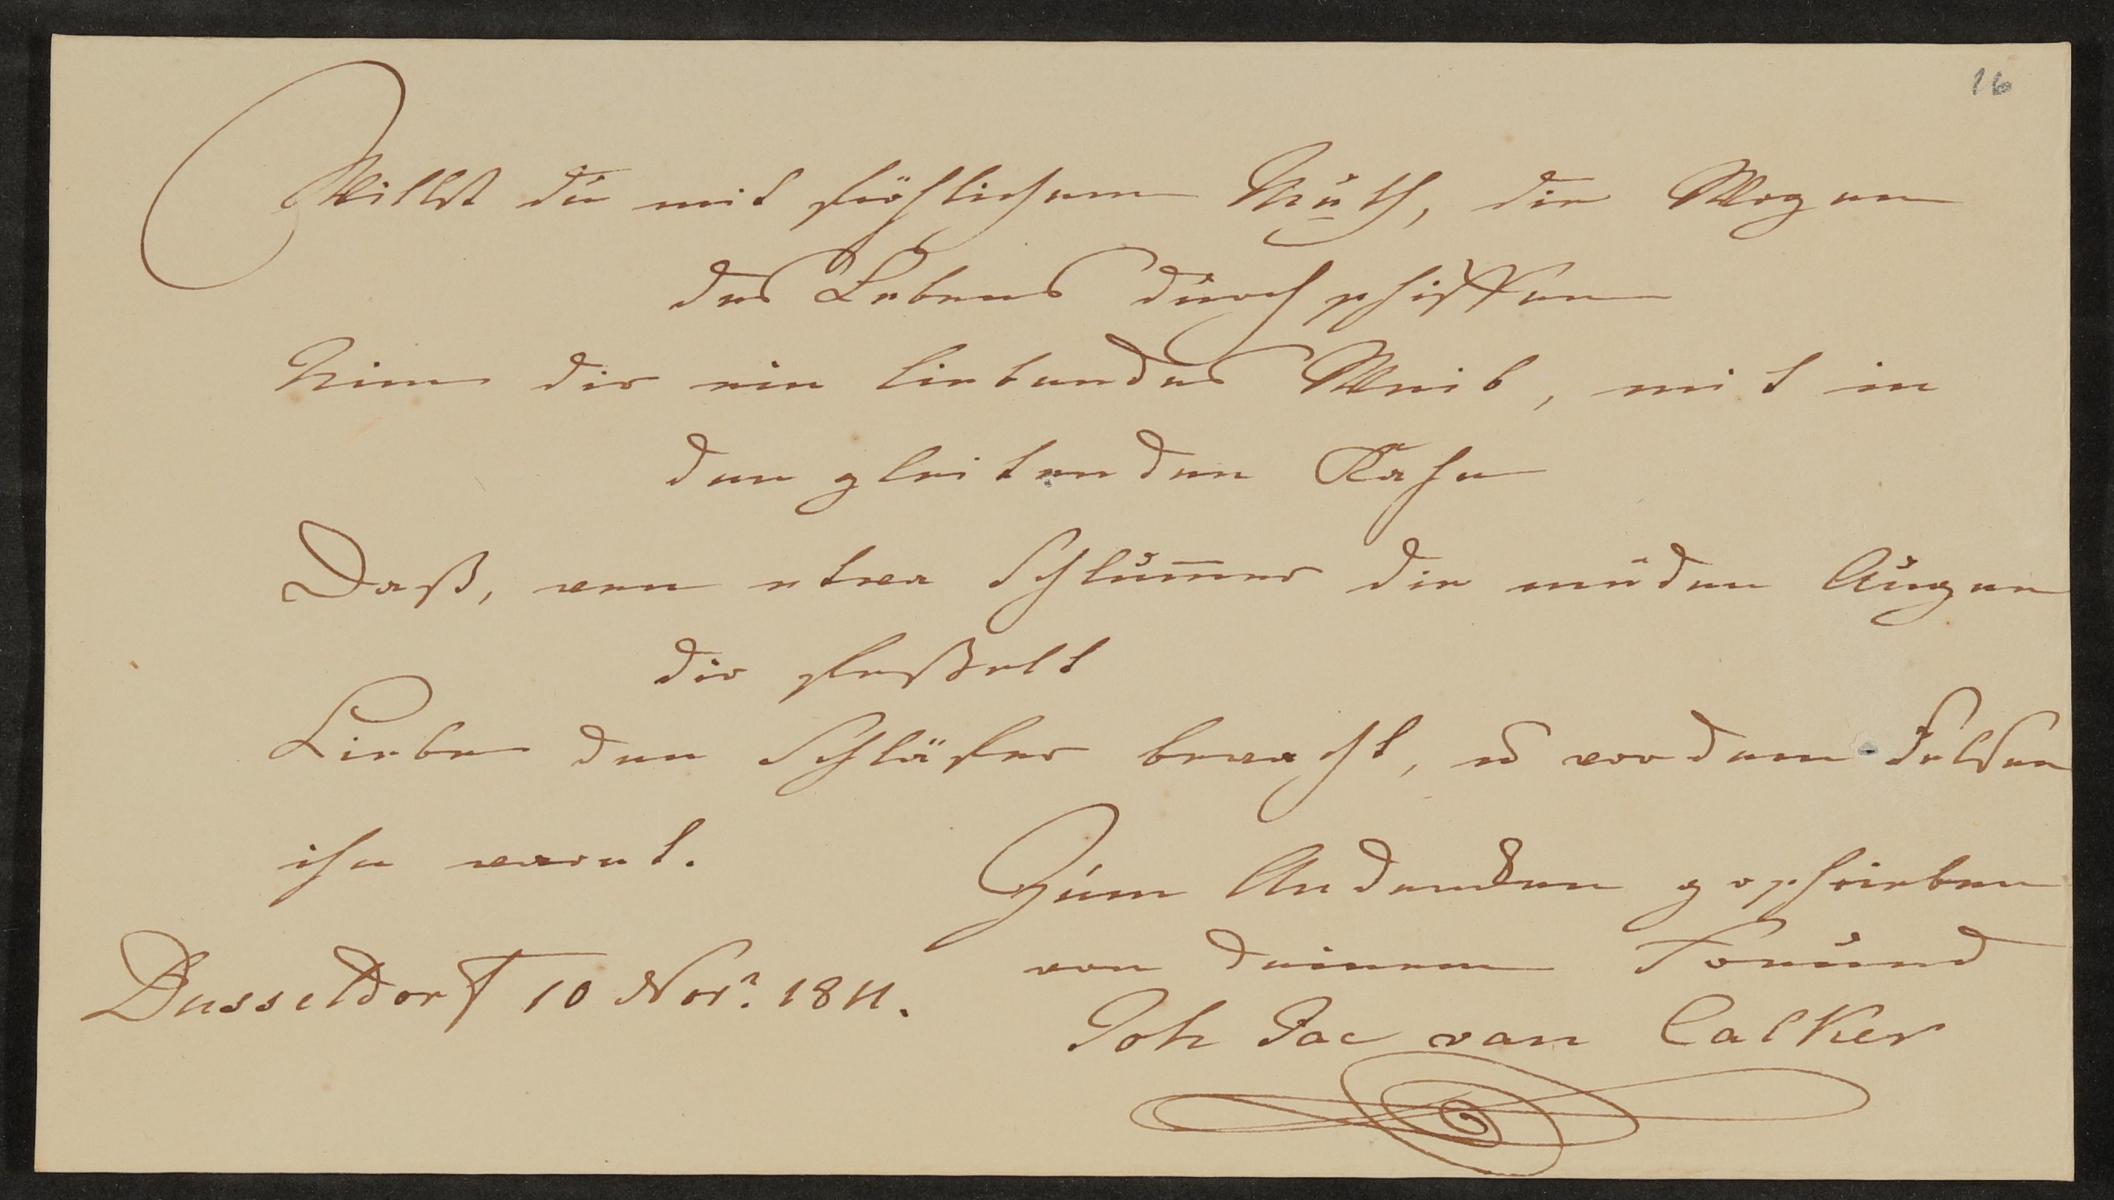 16
Willst du mit fröhlichem Muth, die Wogen
des Lebens durchschiffen
Nim dir ein liebendes Weib, mit in
den gleitenden Kahn
Daß, wen etwa Schlum̄er die müden Augen
dir feßelt
Liebe den Schläfer bewacht, u vor dem Felsen
ihn warnt.
Zum Andenken geschrieben
von deinem Freund
Dusseldorf 10 Nov. 1811.
Joh Jac van Calker